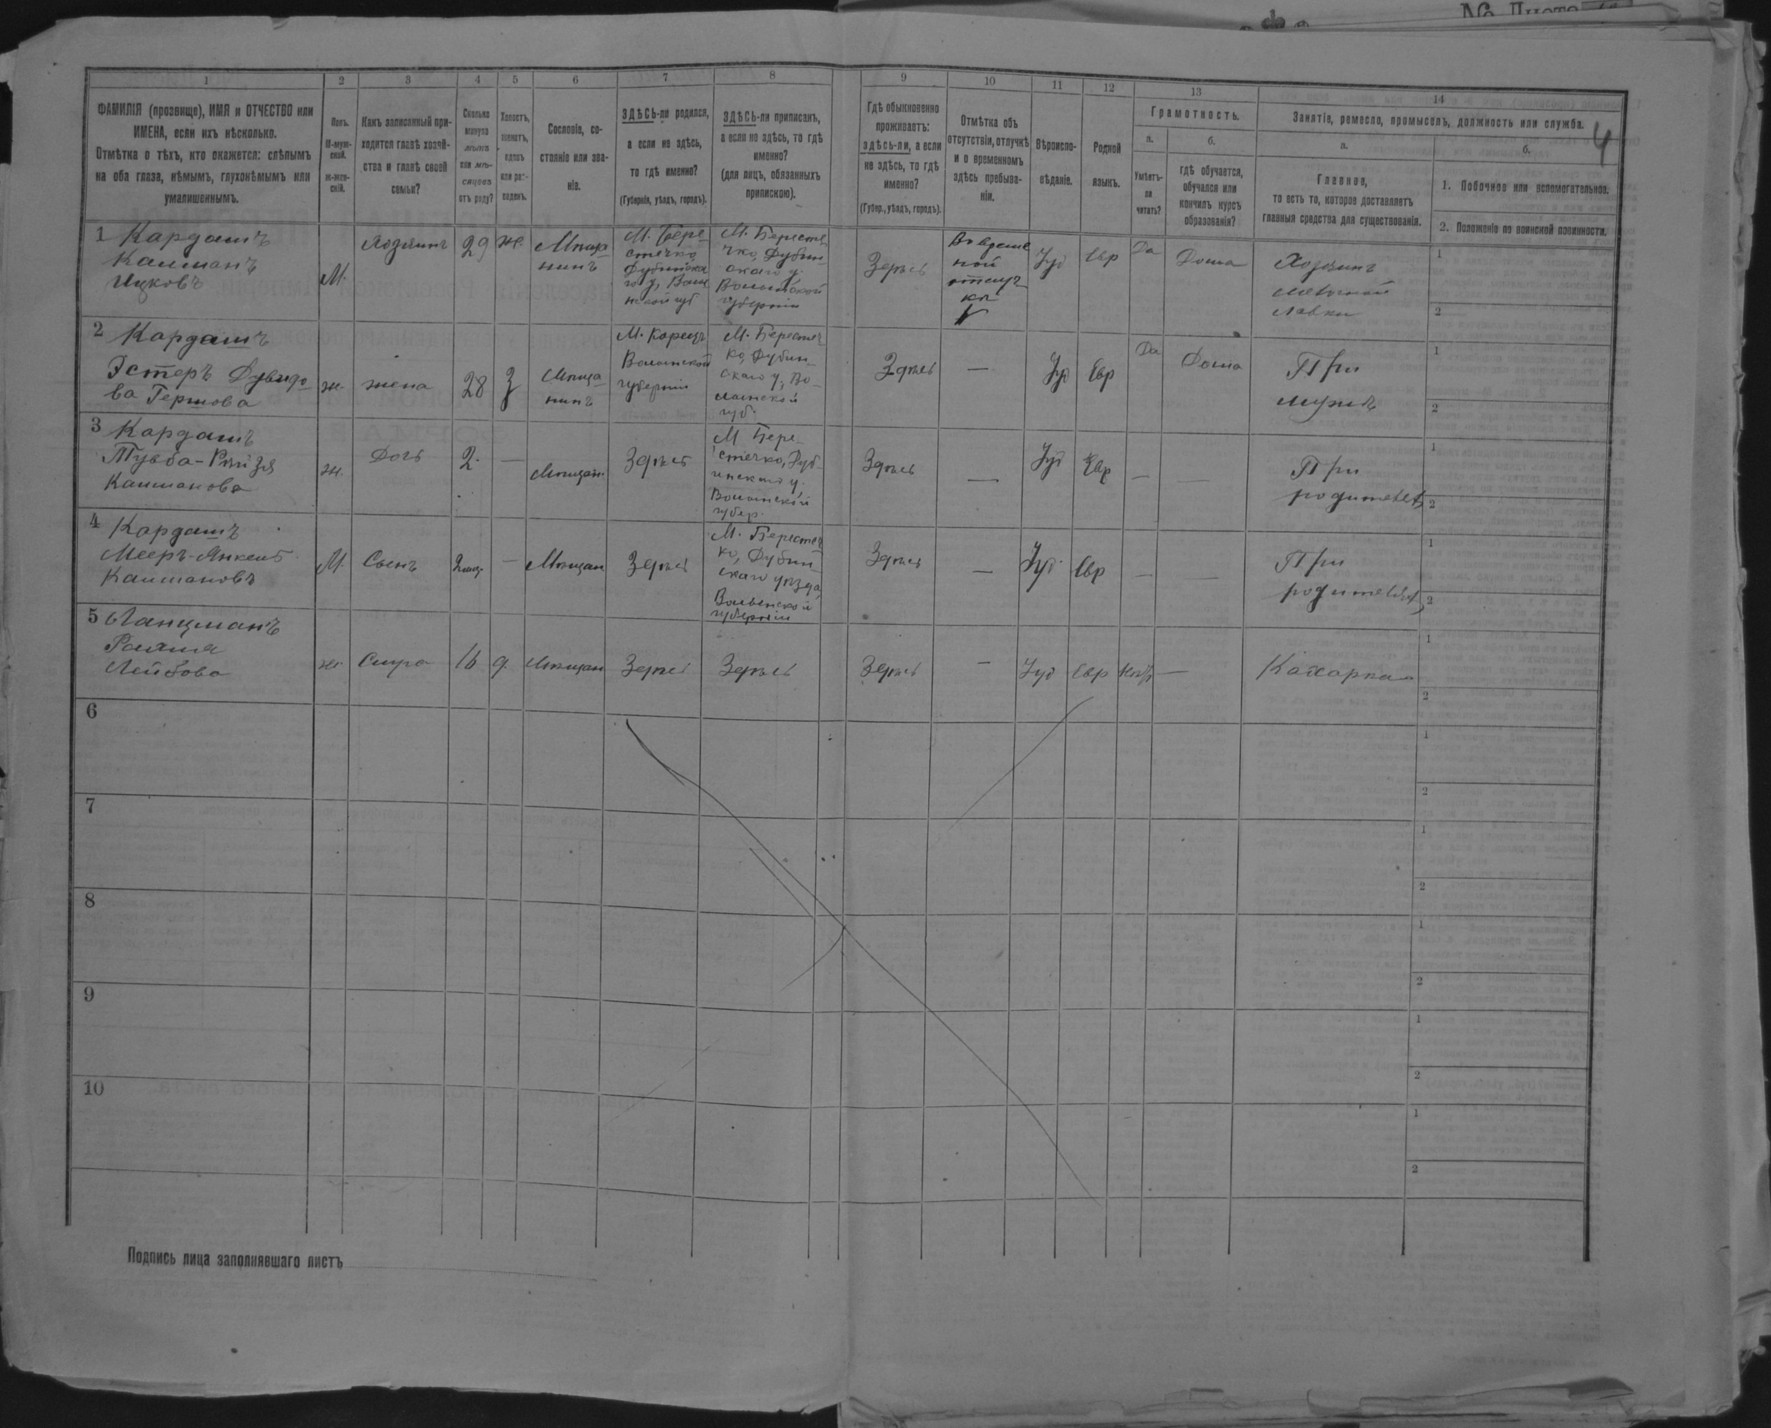 № Листа
4
1
2
3
4
5
6
7
8
9
10
11
12
13
14
ФАМИЛІЯ (прозвище), ИМЯ и ОТЧЕСТВО или
ИМЕНА, если ихъ нѣсколько.
Отмѣтка о тѣхъ, кто окажется: слѣпымъ
на оба глаза, нѣмымъ, глухонѣмымъ или
умалишеннымъ.
Полъ.
М-муж-
ской.
ж-жен-
скій.
Какъ записанный при-
ходится главѣ хозяй-
ства и главѣ своей
семьи?
Сколько
минуло
лѣтъ
или мѣ-
сяцевъ
отъ роду?
Холостъ,
женатъ,
вдовъ
или раз-
веденъ.
Сословіе, со-
стояніе или зва-
ніе.
ЗДѢСЬ-ли родился,
а если не здѣсь,
то гдѣ именно?
(Губернія, уѣздъ, городъ).
ЗДѢСЬ-ли приписанъ,
а если не здѣсь, то гдѣ
именно?
(для лицъ, обязанныхъ
припискою).
Гдѣ обыкновенно
проживаетъ:
здѣсь-ли, а если
не здѣсь, то гдѣ
именно?
(Губер., уѣздъ, городъ).
Отмѣтка объ
отсутствіи, отлучкѣ
и о временномъ
здѣсь пребыва-
ніи.
Вѣроиспо-
вѣданіе.
Родной
языкъ.
Грамотность.
а.
Умѣетъ-
ли
читать?
б.
гдѣ обучается,
обучался или
кончилъ курсъ
образованія?
Занятіе, ремесло, промыселъ, должность или служба.
а.
Главное,
то есть то, которое доставляетъ
главныя средства для существованія.
б.
1. Побочное или вспомогательное.
2. Положеніе по воинской повинности.
1 Кардашъ
Калманъ
Ицковъ
М.
Хозяинъ
29
же.
Мѣщ
нинъ
М. Бере-
стечко
Дубенска
го у, Волы
нской губ
М. Берестe
чко, Дубен-
скаго у.
Волынской
губерніи
Здѣсь
Во времен
ной
отлуч
кѣ
Іуд
Евр
Да
Дома
Хозяинъ
лавки
1
2
2 Кардашъ
Эстеръ Дувидо
ва Гершова
ж.
жена
28
З
Мѣща
нинъ
М. Корецъ
Волынской
губерніи
М. Берестеч
ко, Дубен-
скаго у, Во-
лынской
губ.
Здѣсь
—
Іуд
Евр
Да
Дома
При
мужѣ
1
2
3 Кардашъ
Калманова
ж.
Дочь
2.
—
Мѣщан.
Здѣсь
М Бере-
стечко, Дуб-
нскаго у.
Волынской
губер.
Здѣсь
—
Іуд
Евр
—
—
При
родителях
1
2
4 Кардашъ
Мееръ-Янкель
Калмановъ
М.
Сынъ
2 мѣс.
—
Мѣщан
Здѣсь
М. Берестеч
ко, Дубен-
скаго уѣзда,
Волынской
губерніи
Здѣсь
—
Іуд.
Евр
—
—
При
родителях
1
2
5 Ланцманъ
Лейбова
ж.
16
д.
Мѣщан
Здѣсь
Здѣсь
Здѣсь
—
Іуд
Евр
Нѣтъ
—
Кухарка
1
2
6
1
2
7
1
2
8
1
2
9
1
2
10
1
2
Подпись лица заполнявшаго листъ